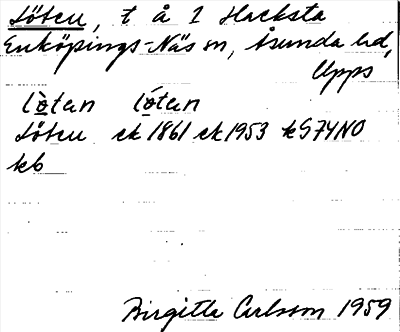 Löten, t å 1 Hacksta
Enköpings-Näs sn, Åsunda hd,
Upps
lö̀tan lö́tan
Löten ek 1861 ek 1953 kS74NO
kb
Birgitta Carlsson 1959